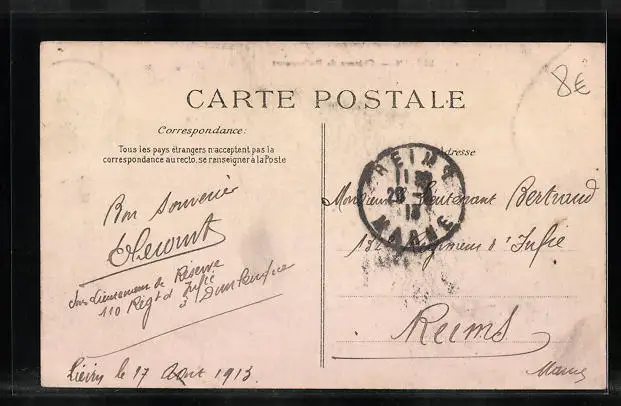 8€
CARTE POSTALE
Correspondance:
Tous les pays étrangers n'acceptent pas la
correspondance au recto, se renseigner à la Poste
Adresse
Bon Souvenir
sous Lieutenant de Réserve
110 Régt d' Infie
à Dunkerque
le 17 Août 1913
REIMS
MARNE
Monsieur Lieutenant Bertrand
132e Régiment d'Infie
Reims
Marne